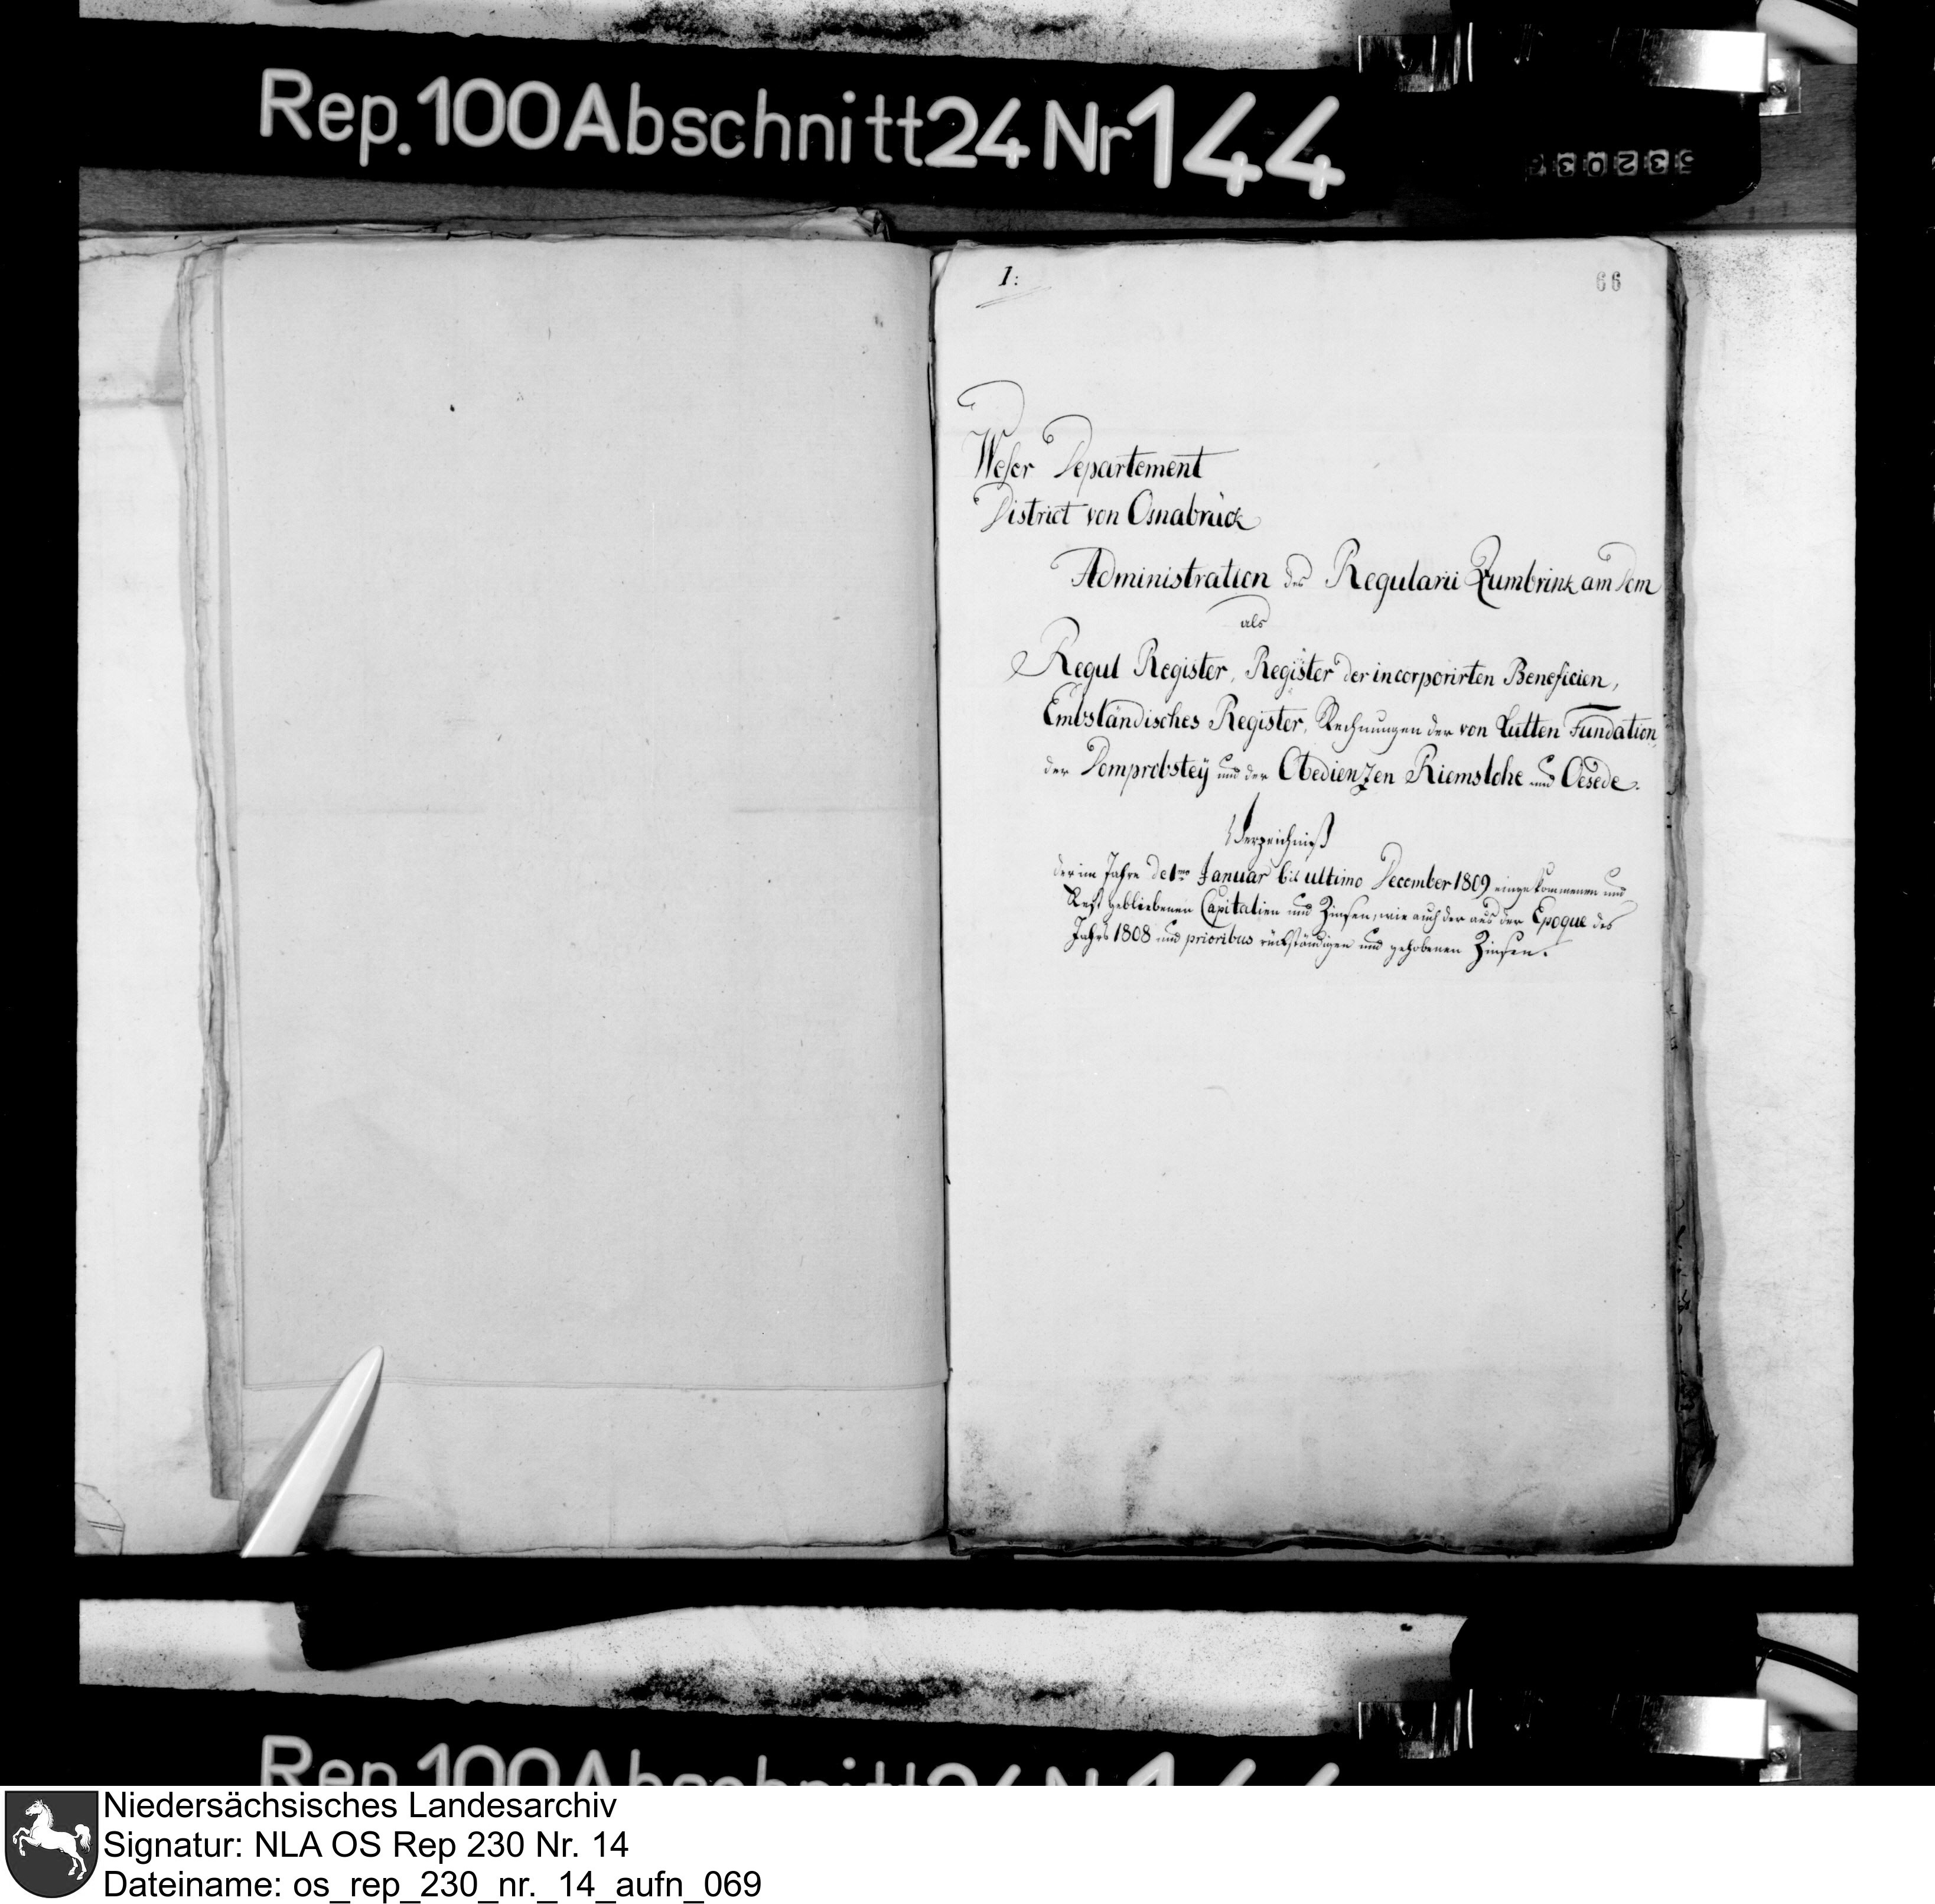 Rep. 100 Abschnitt 24 Nr 144
1:
66
Weser Departement
District von Osnabrück
Administration des Regularii Zumbrink am Dom
als
Regul Register, Register der incorporirten Beneficien,
Embständisches Register, Rechnungen der von Lutten Fundation,
der Domprobstey und der Obedienzen Riemslohe und Oesede.
Verzeichniß
der im Jahre de 1mo Januar bis ultimo December 1809 eingekommenen und
Rest gebliebenen Capitalien und Zinsen, wie auch der aus der Epoque des
Jahrs 1808 und prioribus rückständigen und gehobenen Zinsen.
Rep. 100 Abschnitt 24 Nr 144
Niedersächsisches Landesarchiv
Signatur: NLA OS Rep 230 Nr. 14
Dateiname: os_rep_230_nr._14_aufn_069